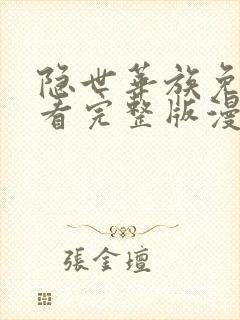 隐世华族免
看完整版漫
張金壇